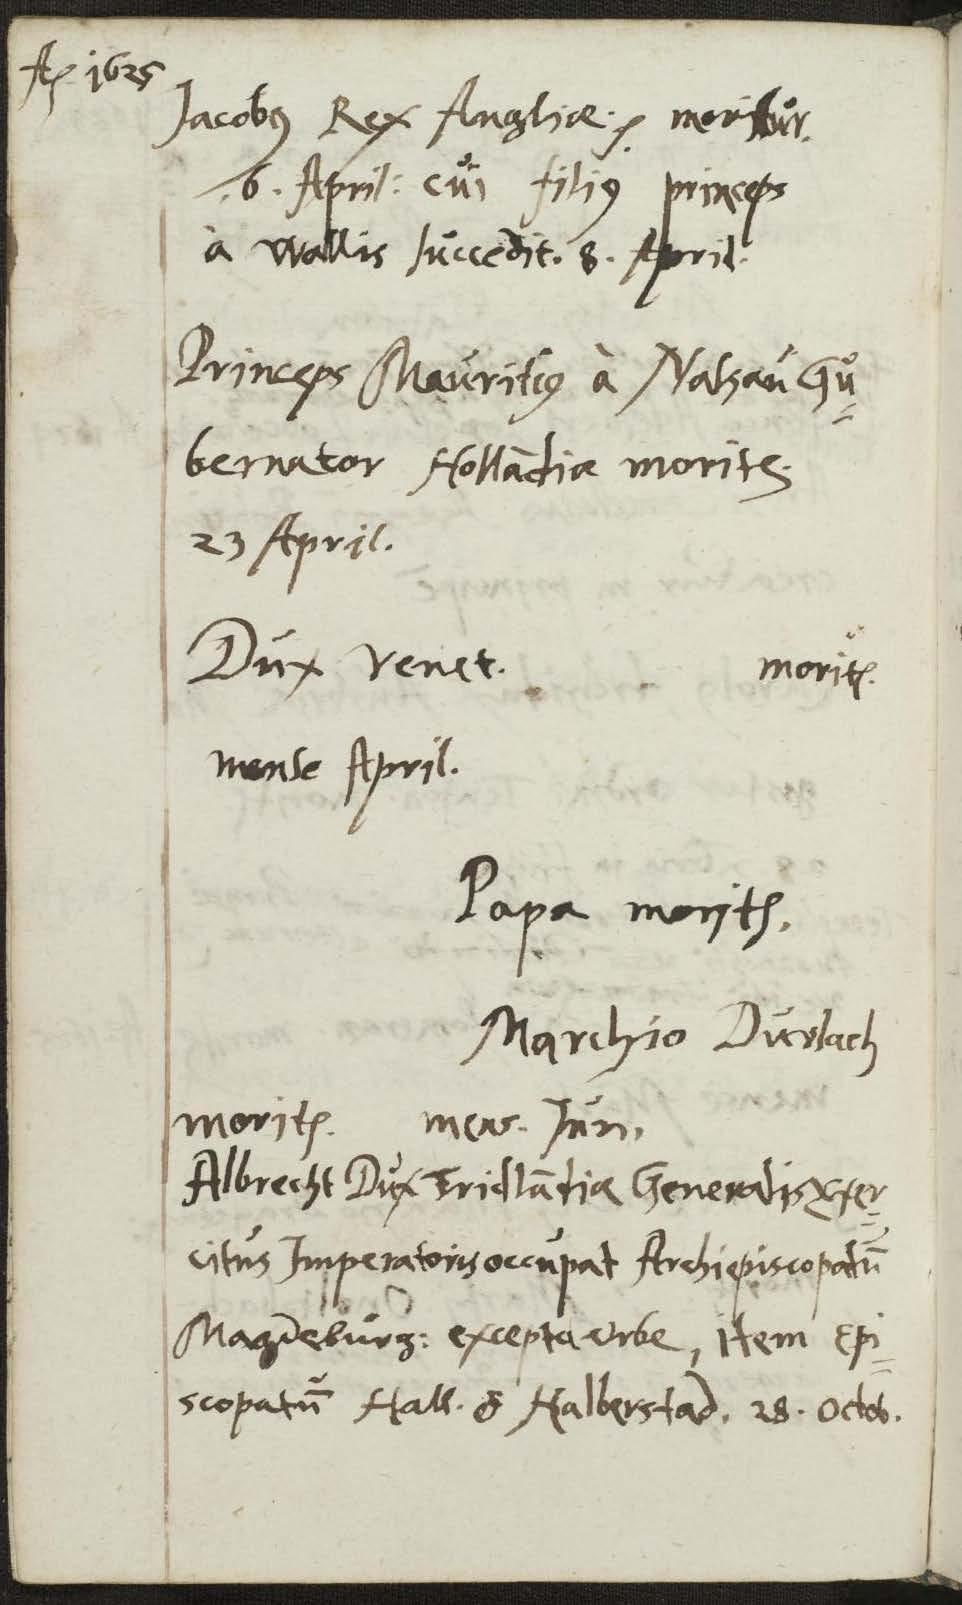 Aō. 1625
Jacobꝰ Rex Angliæ. moritur.
6. April: cui filiꝰ princeps
à Wallis succedit. 8. April.
Princeps Mauritiꝰ à Nassau Gu=
bernator Hollādiæ moritꝛ.
23 April.
Dux Venet. moritꝛ.
mense April.
Papa moritꝛ.
Marchio Durlach
moritꝛ. mens. Jun.
Albrecht Dux Fridlādiæ Generalis Exer=
citus Imperatoris occupat Archiepiscopatū
Magdeburg: excepta urbe, item Epi=
scopatū Hall. & Halberstad. 28. Octob.